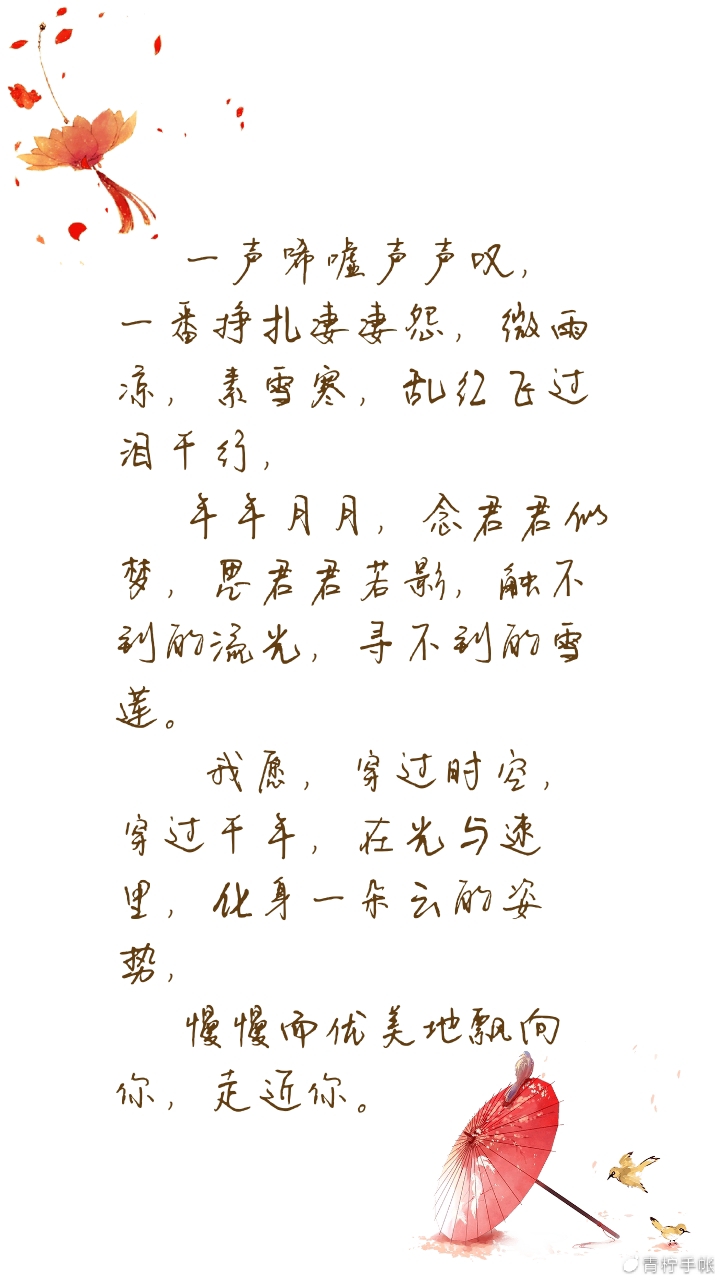 一声唏嘘声声叹，
一番挣扎凄凄怨，微雨
凉，素雪寒，乱红飞过
泪千行，
年年月月，念君君似
梦，思君君若影，触不
到的流光，寻不到的雪
莲。
我愿，穿过时空，
穿过千年，在光与速
里，化身一朵云的姿
势，
慢慢而优美地飘向
你，走近你。
青柠手帐